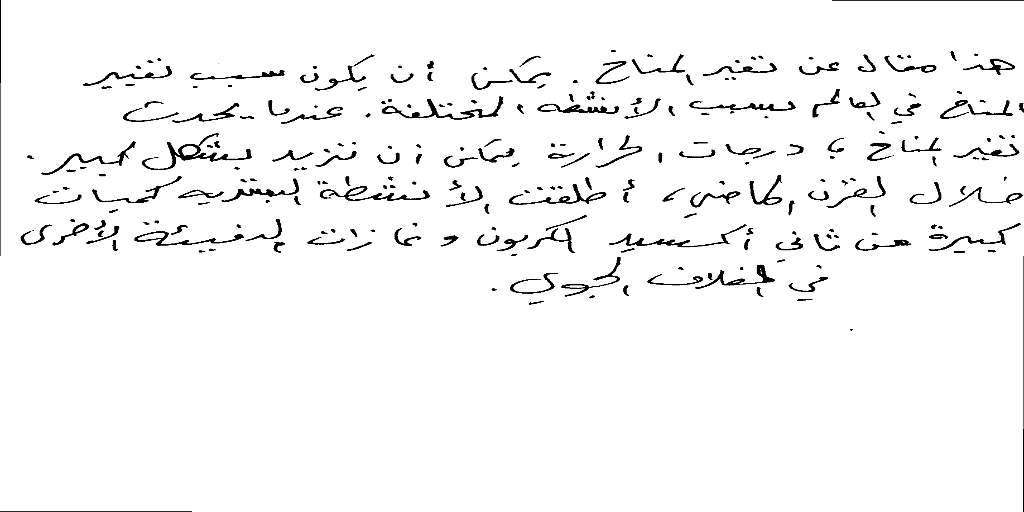 هذا مقال عن تغير المناخ. يمكن أن يكون سبب تغيير
المناخ في العالم بسبب الأنشطه المختلفة. عندما يحدث
تغير المناخ ، درجات الحرارة يمكن ان تزيد بشكل كبير.
خلال القرن الماضي، أطلقت الأنشطة البشريه كميات
كبيرة من ثاني أكسيد الكربون و غازات الدفيئة الأخرى
في الغلاف الجوي.